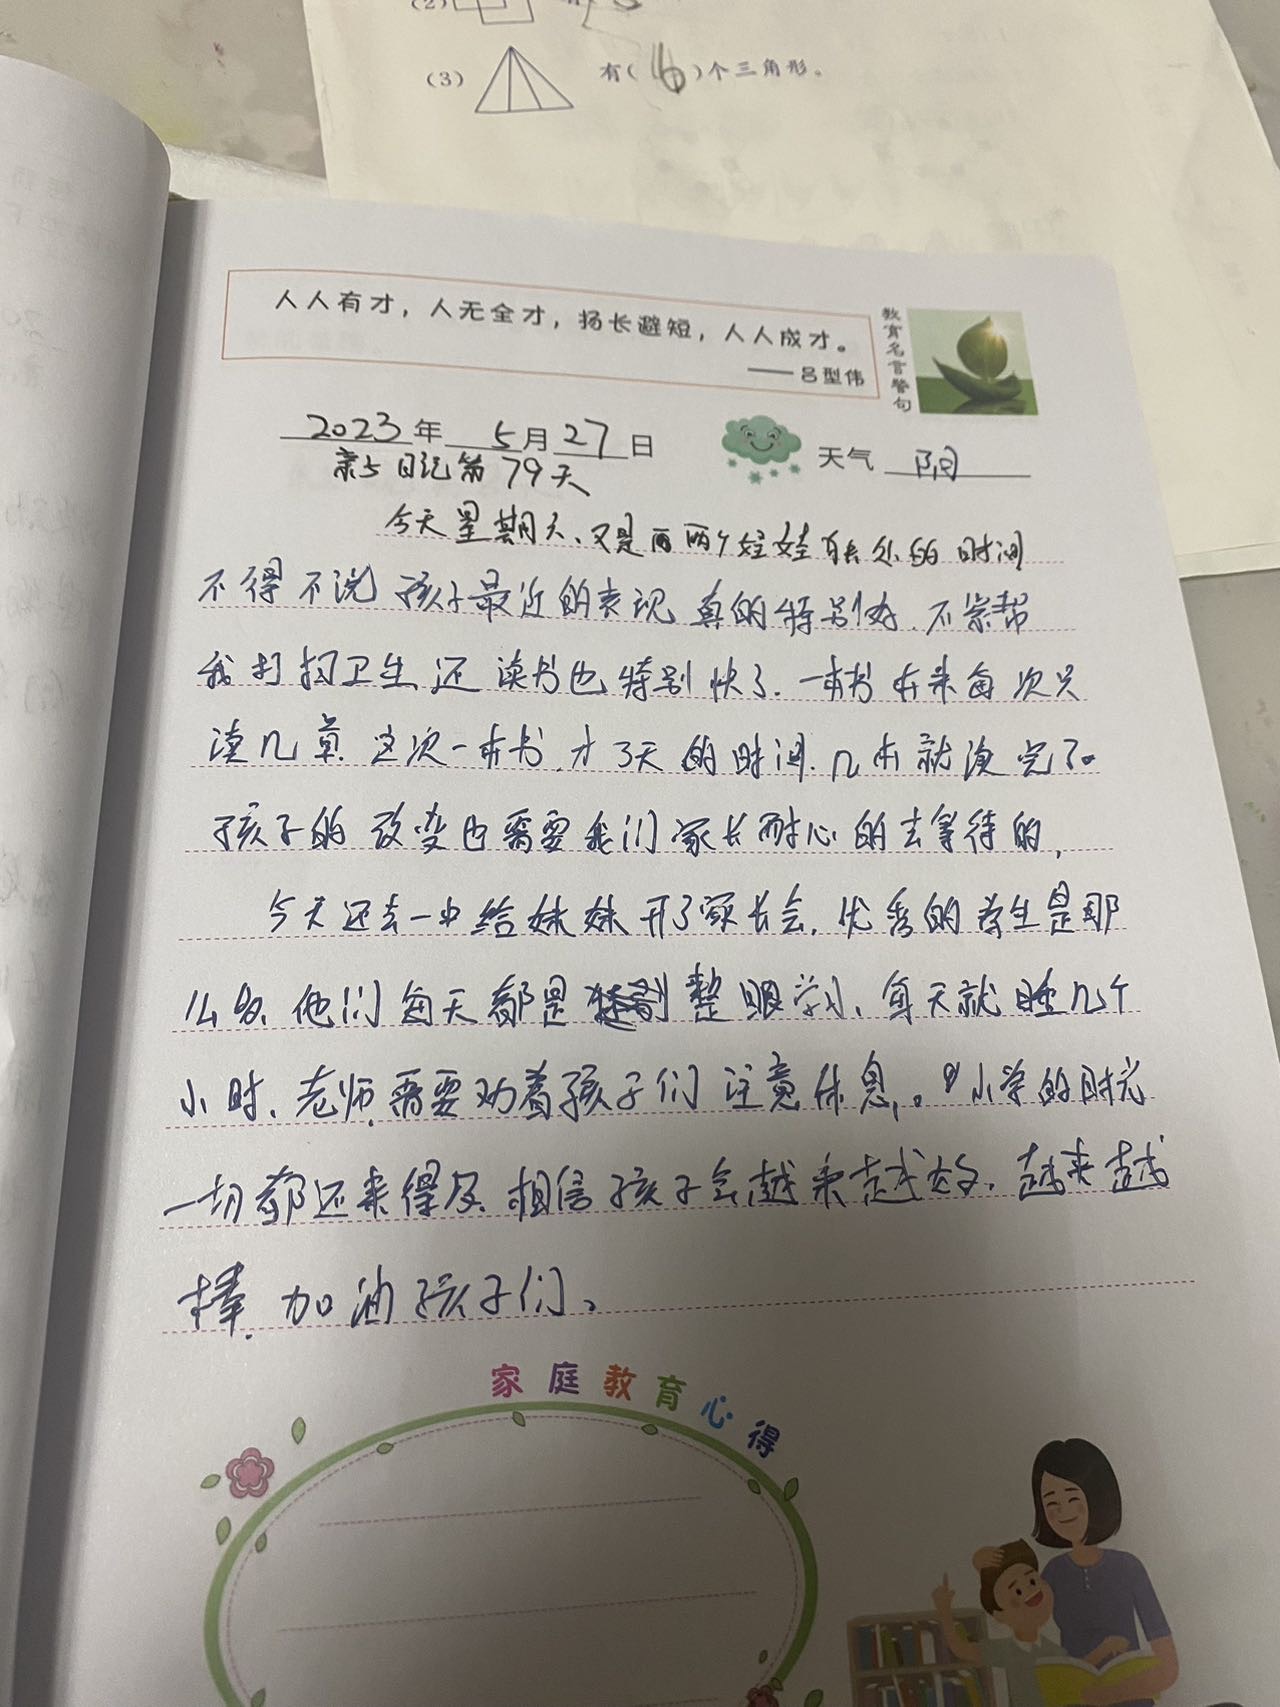 (2)
(3) 有(16)个三角形。
人人有才，人无全才，扬长避短，人人成才。
——吕型伟
教育名言警句
2023年 5月27日 天气 阴
亲子日记第79天
今天星期天、又是两个娃娃自由的时间
不得不说孩子最近的表现真的特别好.不紧帮
我打扫卫生,还读书也特别快了.一本书本来每次只
读几章.这次一本书.才3天的时间.几本就读完了。
孩子的改变也需要我们家长耐心的去等待的,
今天还去一中给妹妹开了家长会.优秀的学生是那
么多.他们每天都是整眼学习、每天就睡几个
小时、老师需要劝着孩子们注意休息,。小学的时光
一切都还来得及.相信孩子会越来越好.越来越
棒.加油孩子们、
家庭教育心得